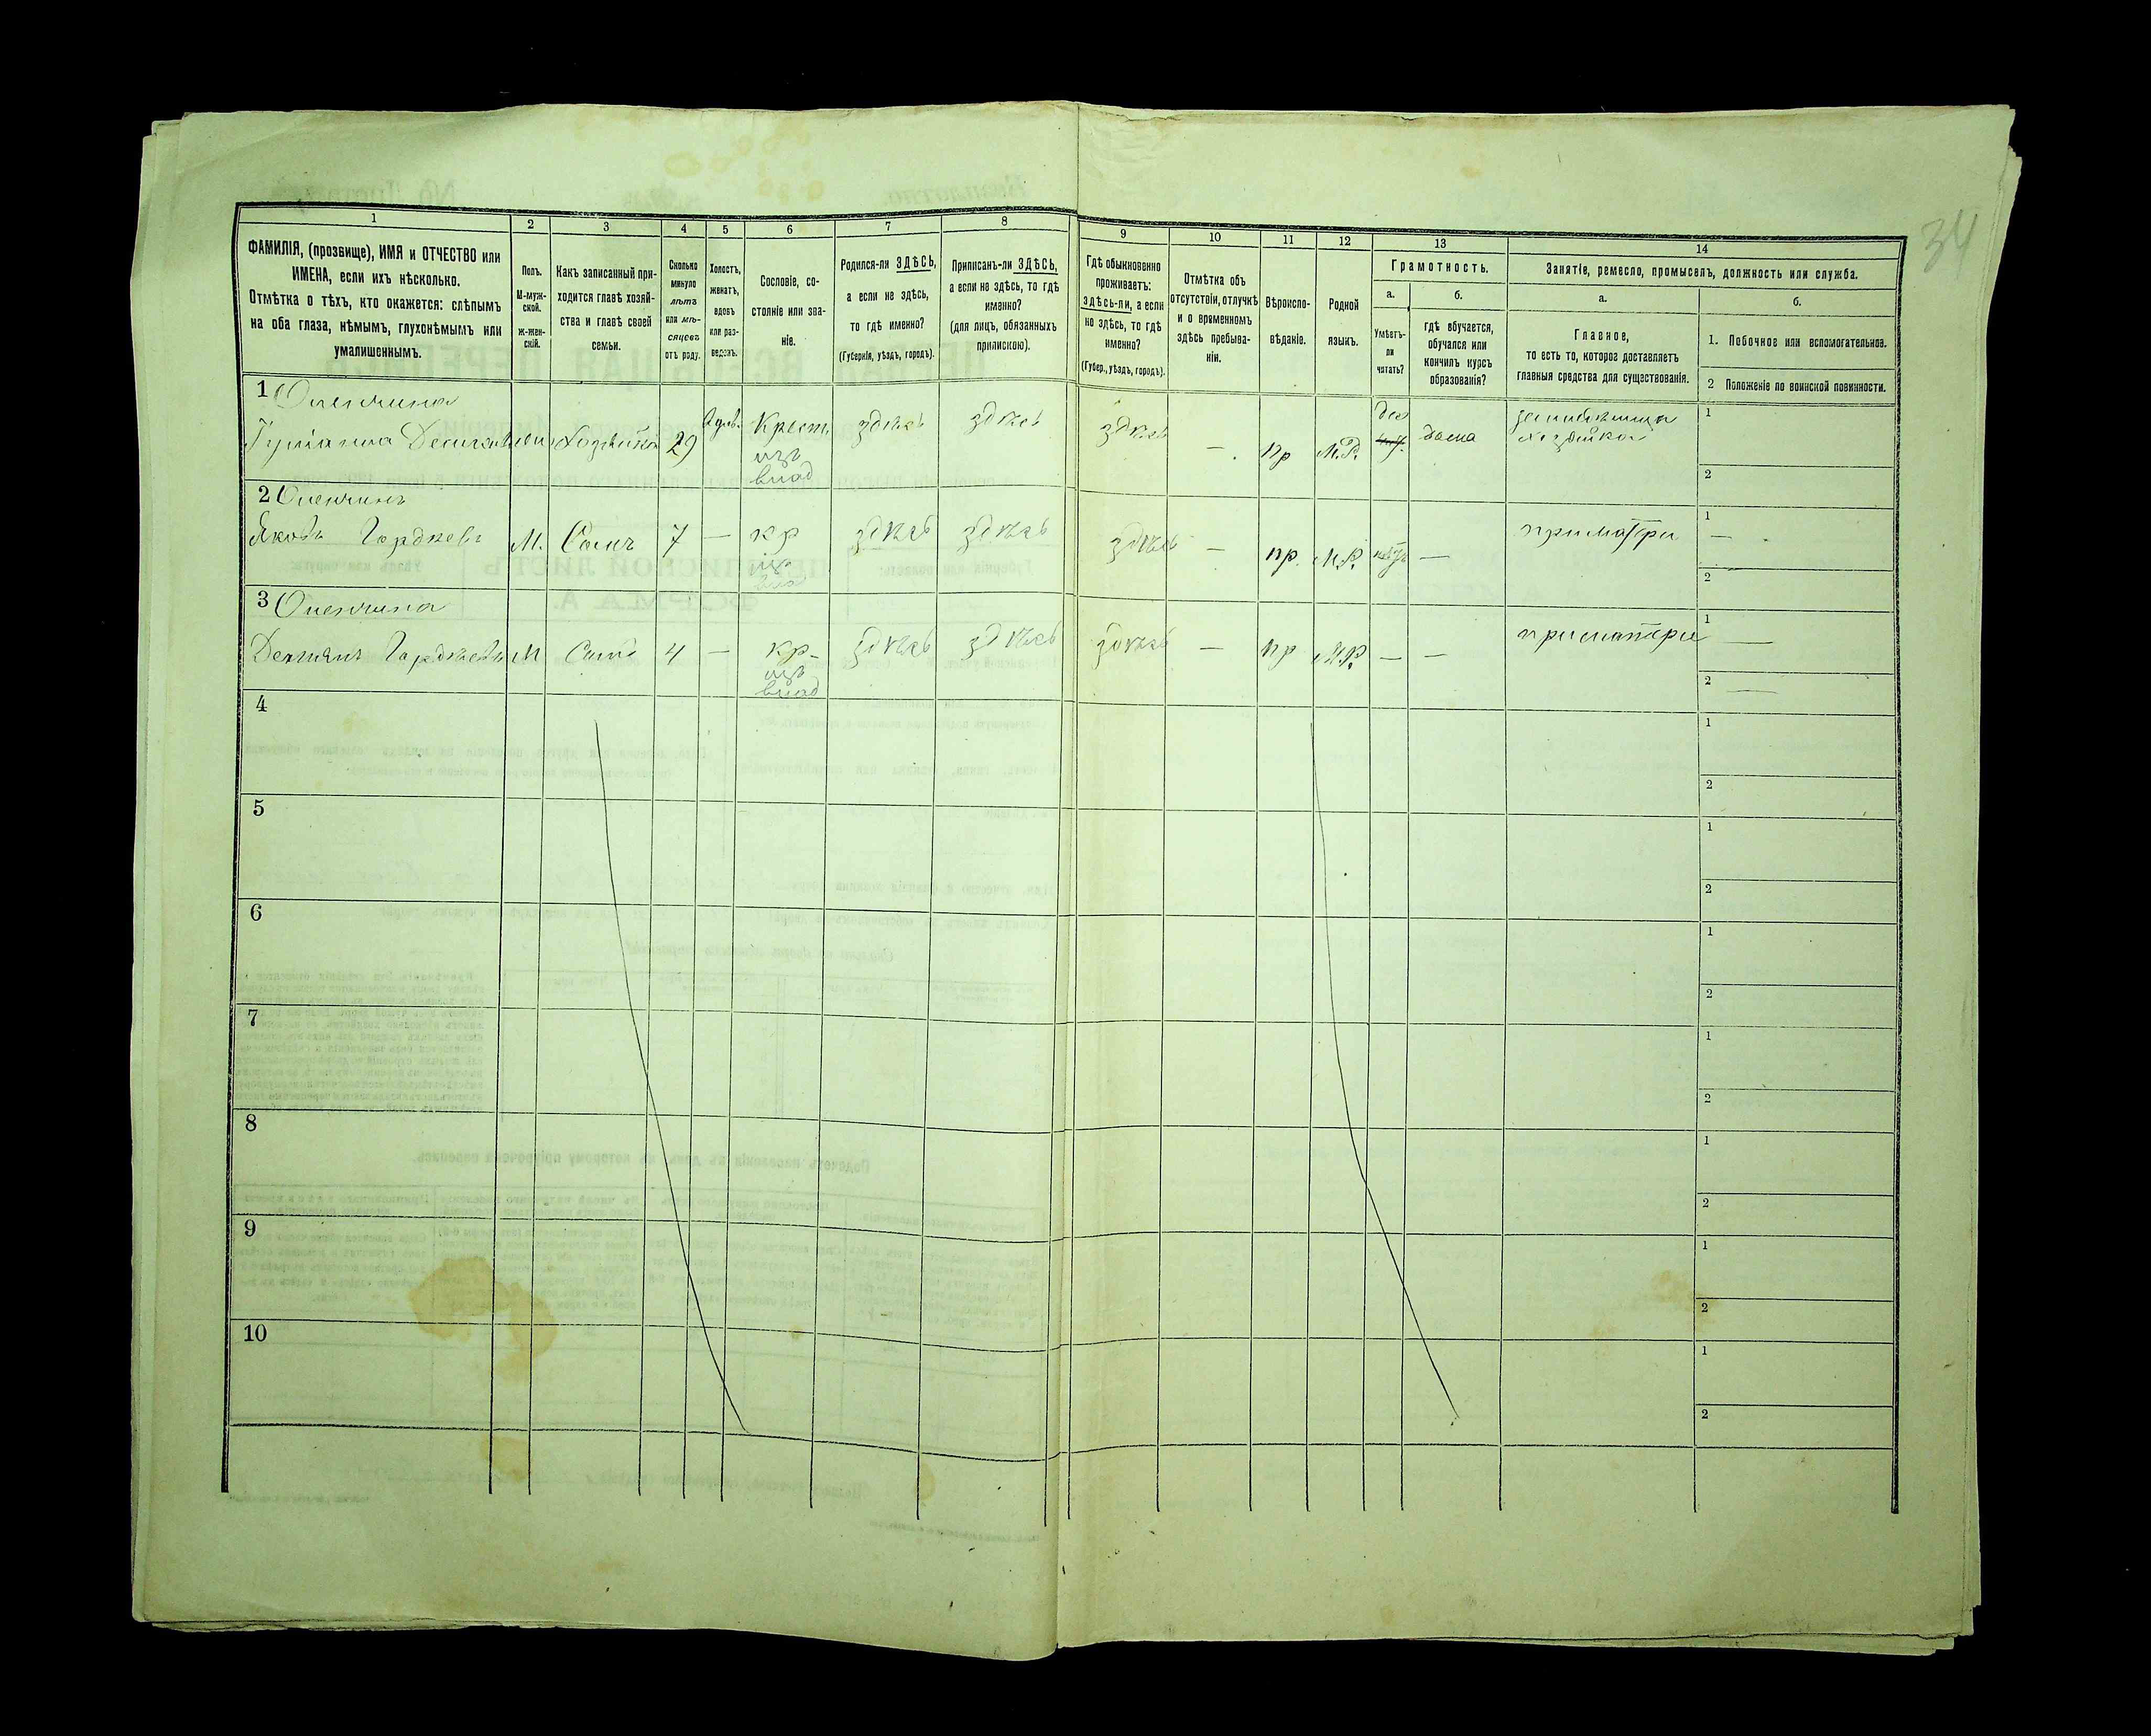 34
1
2
3
4
5
6
7
8
9
10
11
12
13
14
ФАМИЛІЯ, (прозвище), ИМЯ и ОТЧЕСТВО или
ИМЕНА, если ихъ нѣсколько.
Отмѣтка о тѣхъ, кто окажется: слѣпымъ
на оба глаза, нѣмымъ, глухонѣмымъ или
умалишеннымъ.
Полъ.
М-муж-
ской.
ж-жен-
скій.
Какъ записанный при-
ходится главѣ хозяй-
ства и главѣ своей
семьи.
Сколько
минуло
лѣтъ
или мѣ-
сяцевъ
отъ роду.
Холостъ,
женатъ,
вдовъ
или раз-
веденъ.
Сословіе, со-
стояніе или зва-
ніе.
Родился-ли ЗДѢСЬ,
а если не здѣсь,
то гдѣ именно?
(Губернія, уѣздъ, городъ).
Приписанъ-ли ЗДѢСЬ,
а если не здѣсь, то гдѣ
именно?
(для лицъ, обязанныхъ
припискою).
Гдѣ обыкновенно
проживаетъ:
здѣсь-ли, а если
не здѣсь, то гдѣ
именно?
(Губер., уѣздъ, городъ).
Отмѣтка объ
отсутствіи, отлучкѣ
и о временномъ
здѣсь пребыва-
ніи.
Вѣроиспо-
вѣданіе.
Родной
языкъ.
Грамотность.
а.
Умѣетъ-
ли
читать?
б.
гдѣ обучается,
обучался или
кончилъ курсъ
образованія?
Занятіе, ремесло, промыселъ, должность или служба.
а.
Главное,
то есть то, которое доставляетъ
главныя средства для существованія.
б.
1. Побочное или вспомогательное.
2 Положеніе по воинской повинности.
1
Хозяйка 29 Вдов. Крест. здѣсь здѣсь здѣсь — пр М.Р. дома
изъ
влад
хозяйка
1
2
2
Яковъ Гордѣевъ М. Сынъ 7 — кр здѣсь здѣсь здѣсь — пр. М.Р. — при матери
1 —
2
3
Демьянъ Гордѣевъ М Сынъ 4 — кр- здѣсь здѣсь здѣсь — пр М.Р. — — при матери
изъ
влад
1 —
2 —
4
1
2
5
1
2
6
1
2
7
1
2
8
1
2
9
1
2
10
1
2